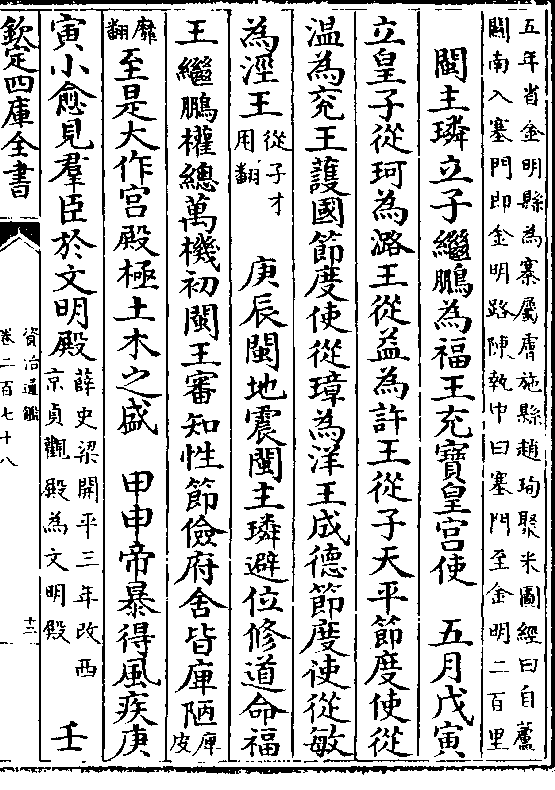 五年省金明縣為寨屬膚施縣趙珣聚米圖經曰自蘆
關南入塞門即金明路陳執中曰塞門至金明二百里
閩主璘立子繼鵬為福王充寶皇宮使　五月戊寅
立皇子從珂為潞王從益為許王從子天平節度使從
温為兖王䕶國節度使從璋為洋王成德節度使從敏
為涇王從子才用翻　庚辰閩地震閩主璘避位修道命福
王繼鵬權總萬機初閩王審知性節儉府舍皆庳陋庳皮
靡翻至是大作宮殿極土木之盛　甲申帝暴得風疾庚
寅小愈見羣臣於文明殿薛史梁開平三年改西京貞觀殿為文明殿　壬
欽定四庫全書
資治通鑑
卷二百七十八
十三